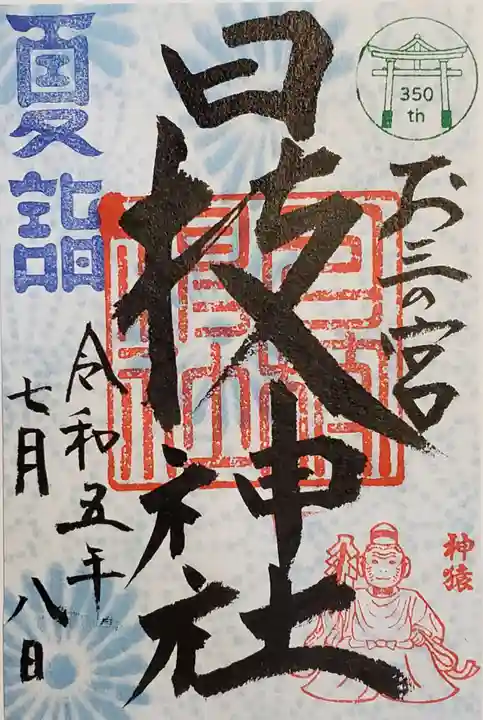 350
th
お三の宮
日枝神社
夏詣
令和五年
七月八日
神猿